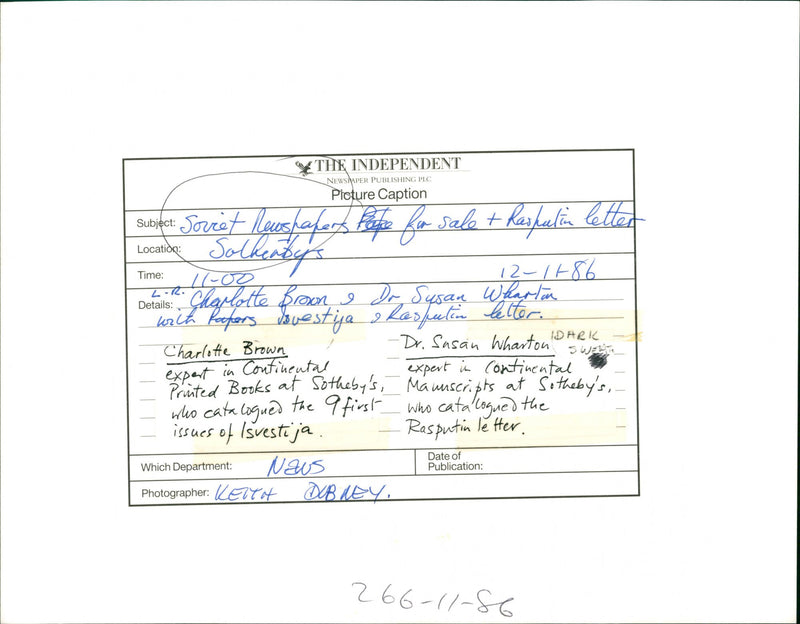 THE INDEPENDENT
NEWSPAPER PUBLISHING PLC
Picture Caption
Subject: Soviet Newspapers for sale + Rasputin letter
Location: Sothebys
Time: 11-00 12-11-86
L-R.
Details: Charlotte Brown & Dr Susan Wharton
with papers Isvestija & Rasputin letter.
Charlotte Brown
expert in Continental
Printed Books at Sotheby's,
who catalogued the 9 first
issues of Isvestija.
Dr. Susan Wharton (DARK
expert in Continental
Manuscripts at Sotheby's,
who catalogued the
Rasputin letter.
Which Department: NEWS
Date of
Publication:
Photographer: KEITH DOBNEY.
266-11-86